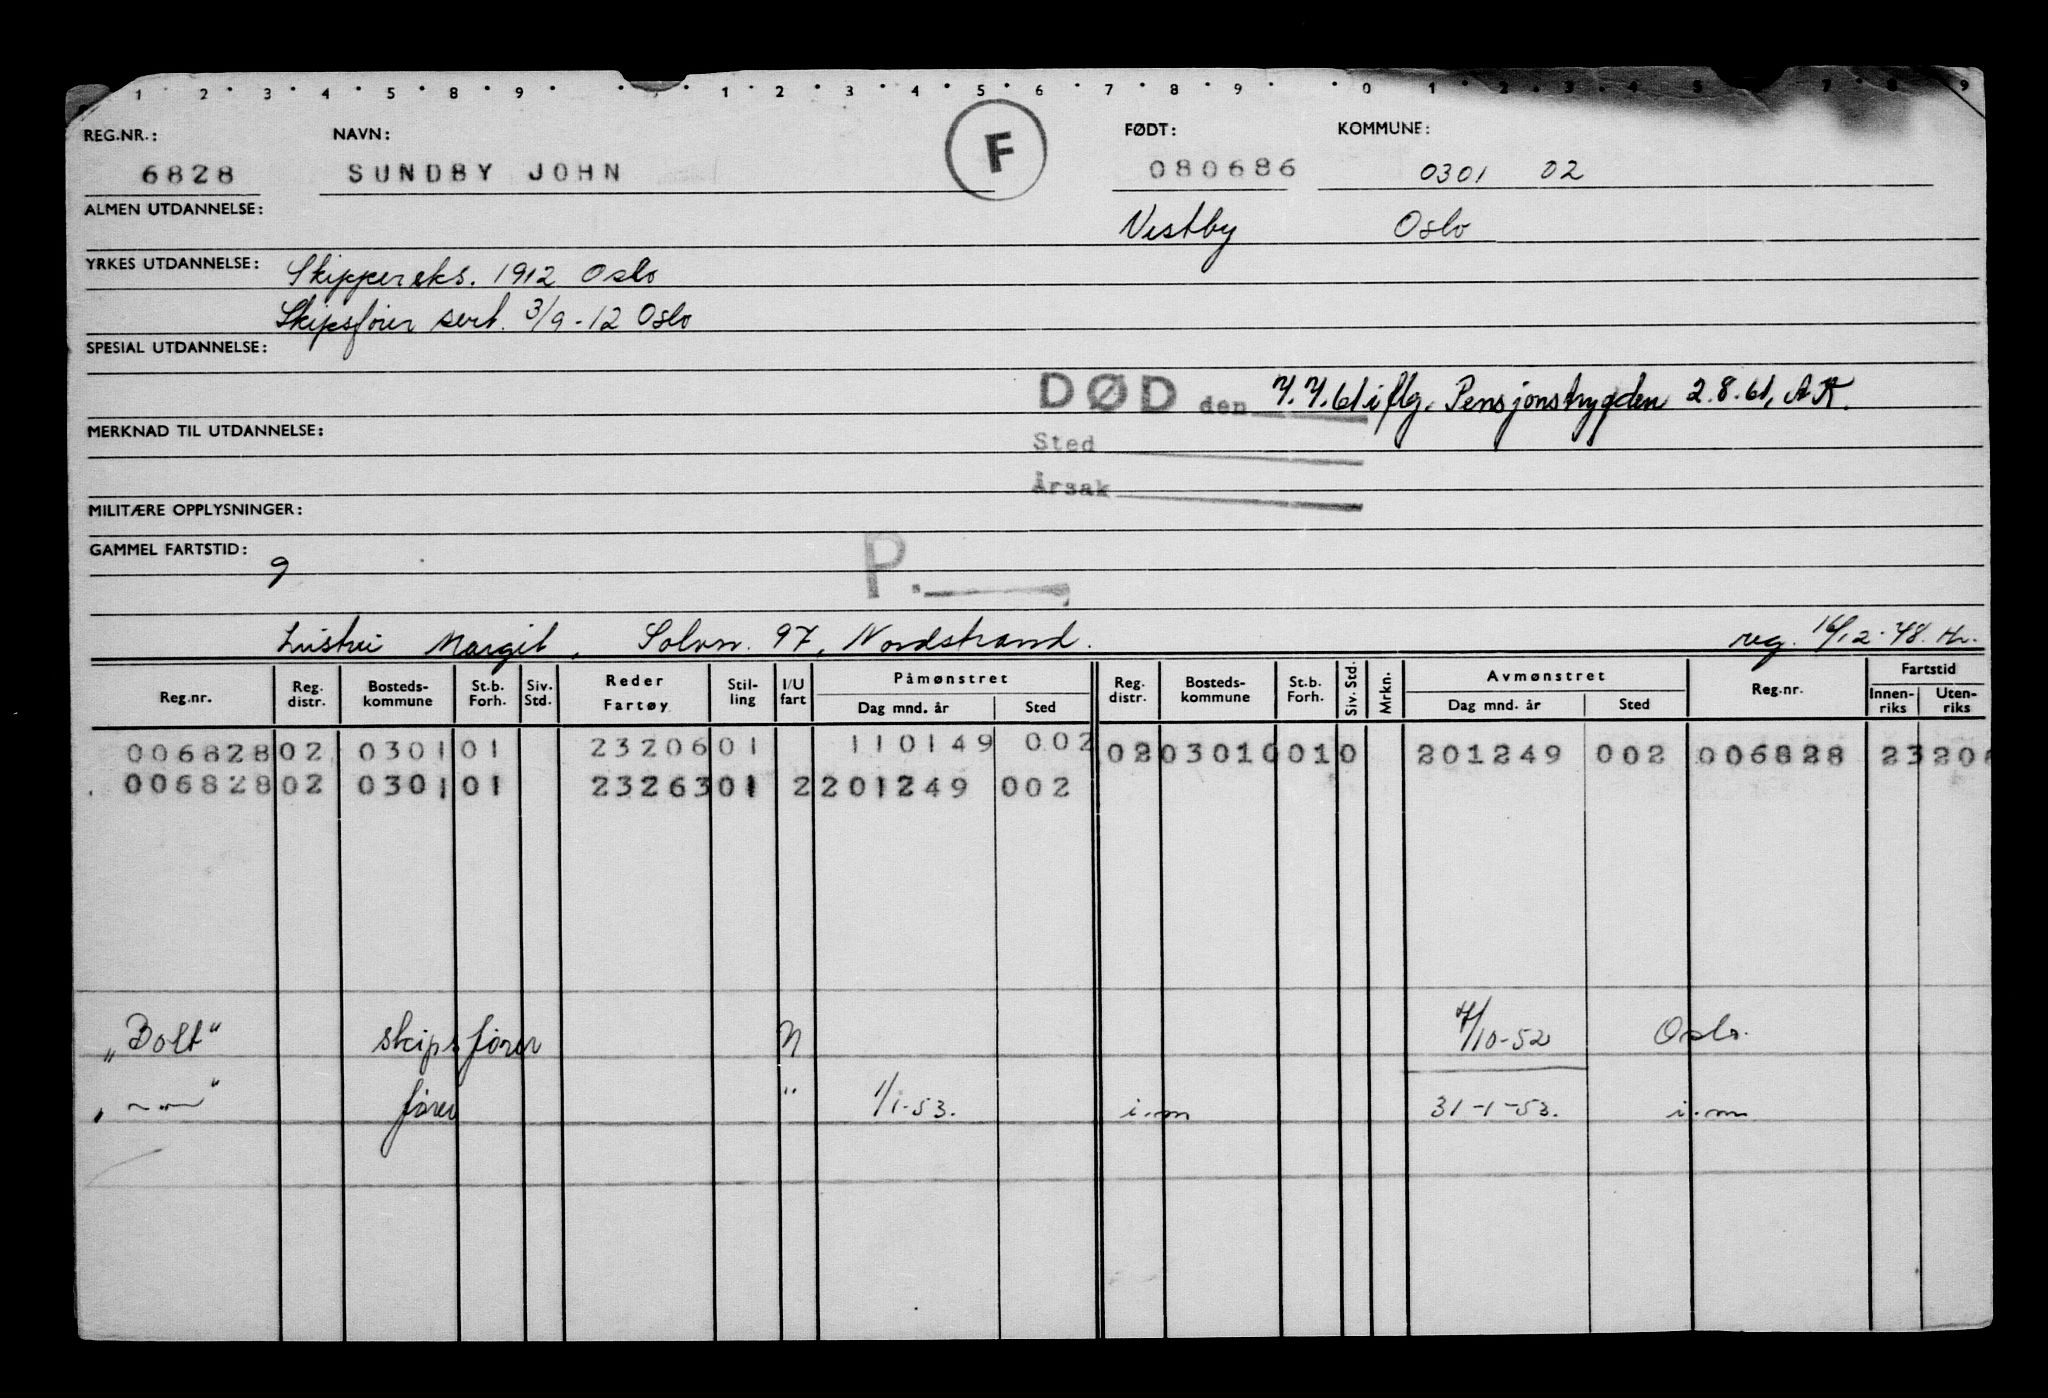 1 2 3 4 5 8 9 1 2 3 4 5 6 7 8 9 0 1 2 3 4 5 7 8 9
REG.NR.: NAVN: F FØDT: KOMMUNE:
6828 SUNDBY JOHN 080686 0301 02
ALMEN UTDANNELSE: Vestby Oslo
YRKES UTDANNELSE: Skippereks. 1912 Oslo
Skipsfører sert. 3/9-12 Oslo
SPESIAL UTDANNELSE:
DØD den 7.7.61 iflg. Pensjonstrygden 2.8.61, A.K.
MERKNAD TIL UTDANNELSE:
Sted
Årsak
MILITÆRE OPPLYSNINGER:
GAMMEL FARTSTID: 9
P.
Margit, Solvn. 97, Nordstrand. reg. 16/12-48.
Reg.nr. Reg. distr. Bosteds-kommune St.b. Forh. Siv. Std. Reder Fartøy Stil-ling I/U fart Påmønstret Dag mnd. år Sted Reg. distr. Bosteds-kommune St.b. Forh. Siv. Std. Mrkn. Avmønstret Dag mnd. år Sted Reg.nr. Fartstid Innen-riks Uten-riks
006828 02 0301 01 23206 01 110149 002 02 0301 0 01 0 201249 002 006828 23 206
006828 02 0301 01 23263 01 2 201249 002
"Bolt" skipsfører N 7/10-52 Oslo.
" — " — " fører " 1/1-53. i.m 31-1-53. i.m